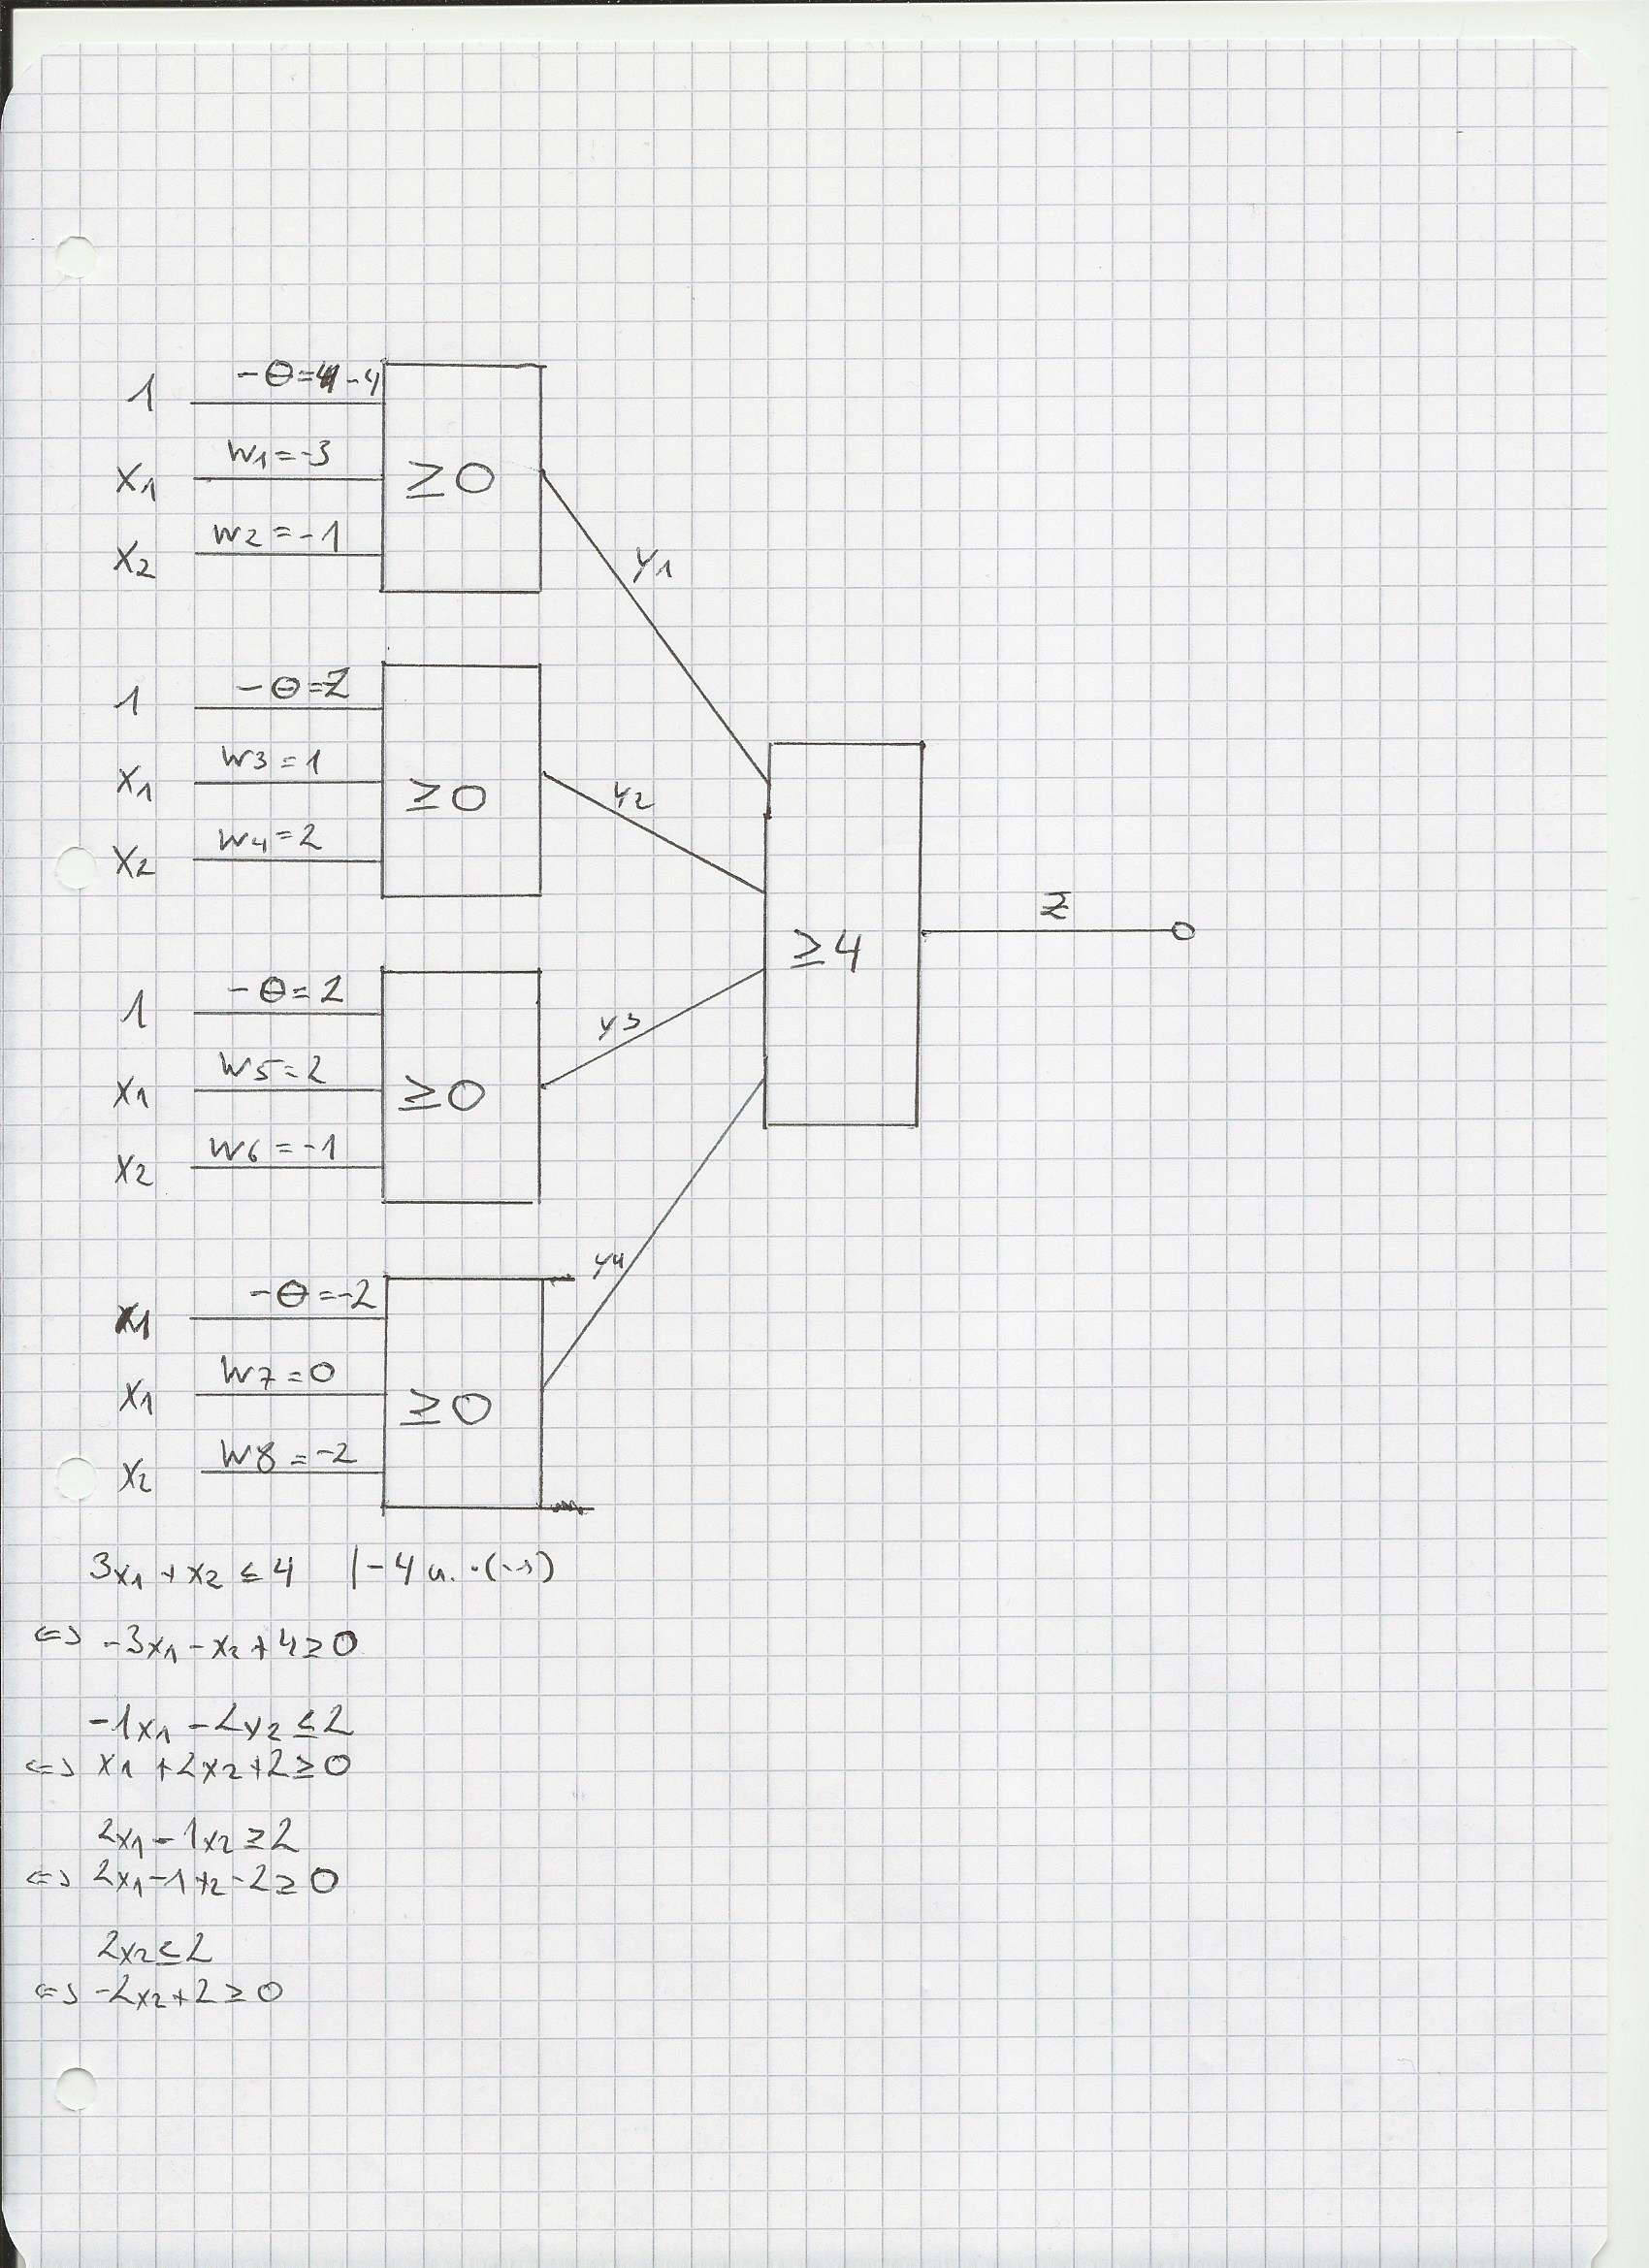 1 -Θ=-4
x1 w1=-3 ≥0
x2 w2=-1
y1
1 -Θ=2
x1 w3=1 ≥0
x2 w4=2
y2
≥4
z
1 -Θ=2
x1 w5=2 ≥0
x2 w6=-1
y3
1 -Θ=-2
x1 w7=0 ≥0
x2 w8=-2
y4
3x1+x2≤4 |-4 u. ·(-1)
⇔ -3x1-x2+4≥0
-1x1-2x2≤2
⇔ x1+2x2+2≥0
2x1-1x2≥2
⇔ 2x1-1x2-2≥0
2x2≤2
⇔ -2x2+2≥0